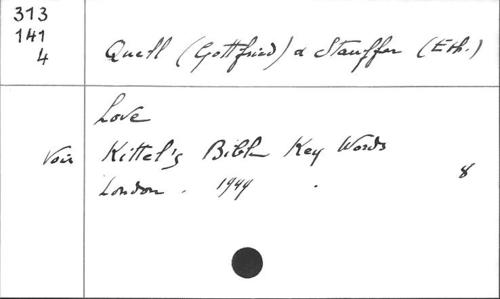 313
141
4
Quell (Gottfried) & Stauffer (Eth.)
Love
Voir Kittel's Bible Key Words
London. 1949. 8